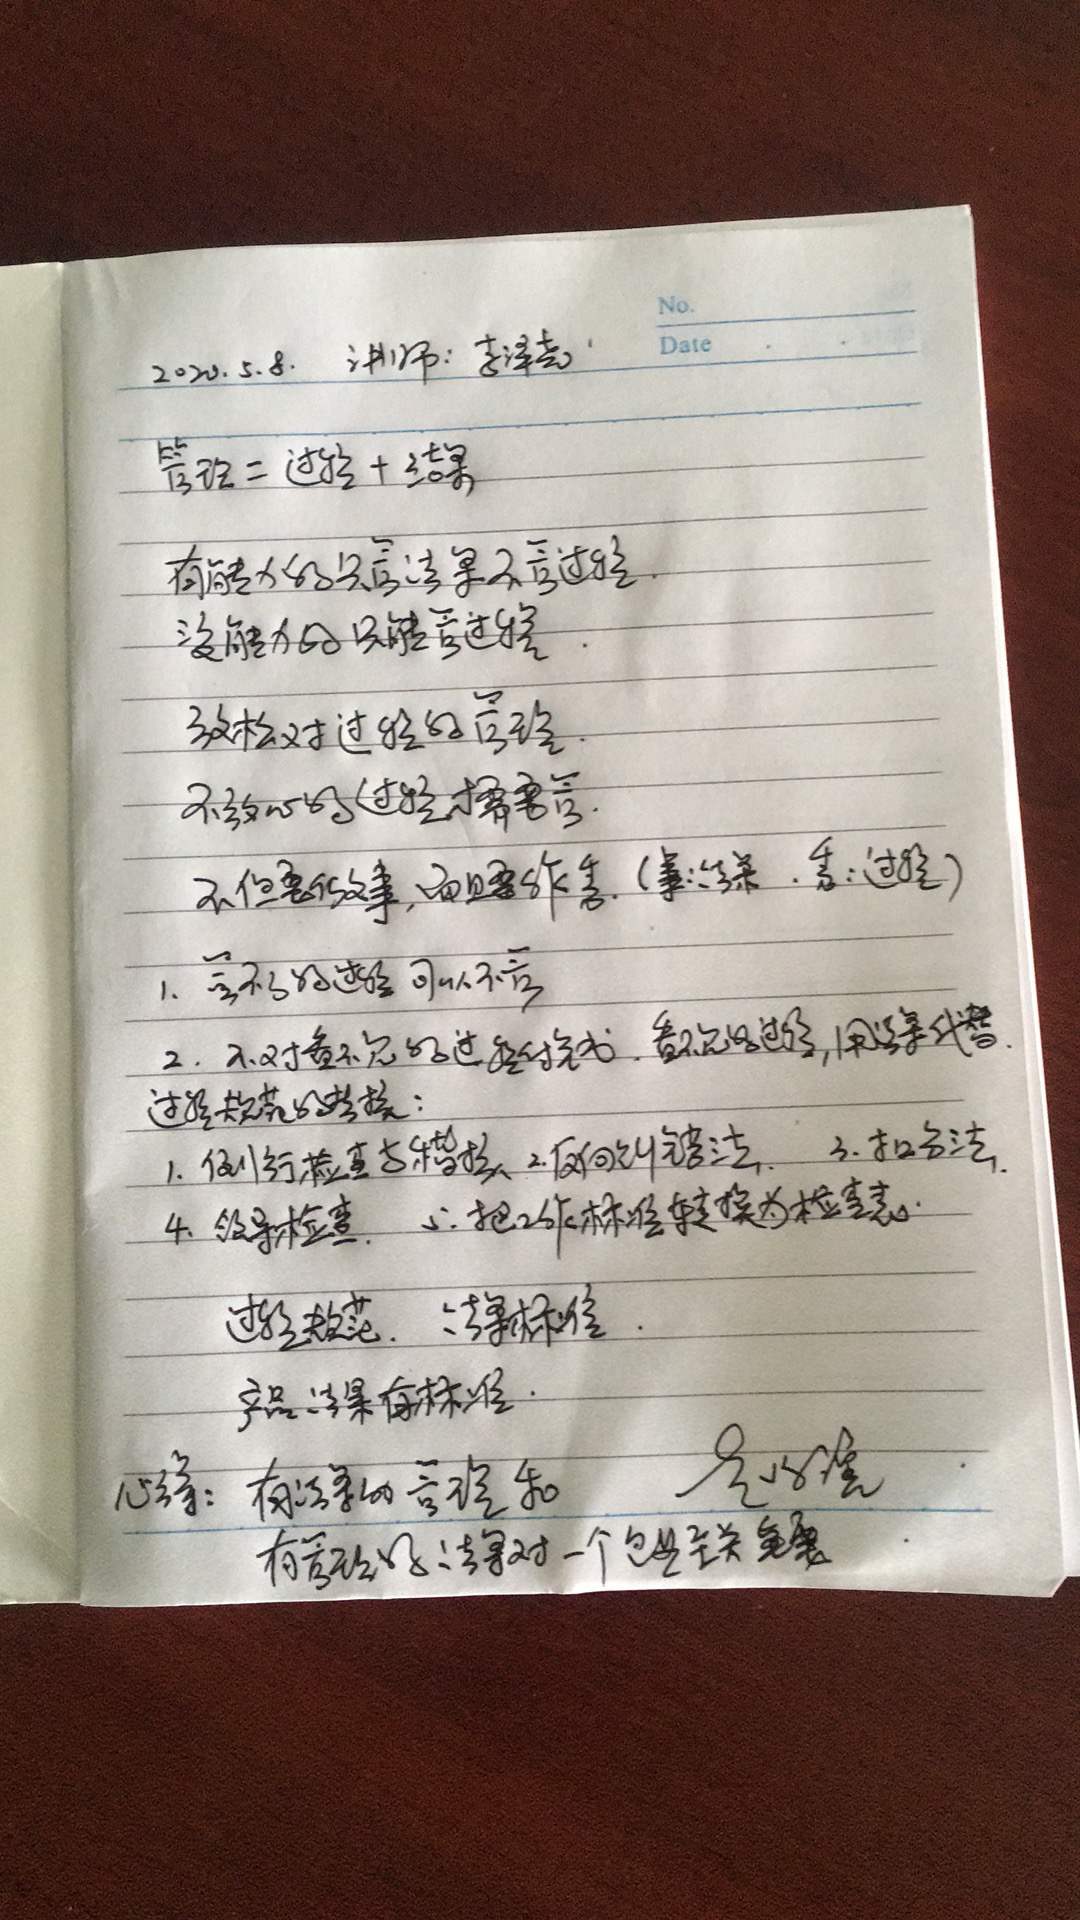 No.
Date
2020.5.8. 讲师：李泽尧
管理＝过程＋结果
有能力的只管结果不管过程.
没能力的只能管过程.
放松对过程的管理.
不放心的过程才需要管.
不但要做事，而且要作秀.（事：结果. 秀：过程）
1. 管不了的过程可以不管
2. 不对看不见的过程付完式. 看不见的过程，用结果代替.
过程规范的考核：
1. 例行检查与稽核 2. 反向纠错法. 3. 扣分法.
4. 领导检查. 5. 把工作标准转换为检查表.
过程规范. 结果标准.
产品结果有标准.
心得：有结果的管理和
有管理的结果对一个企业至关重要.